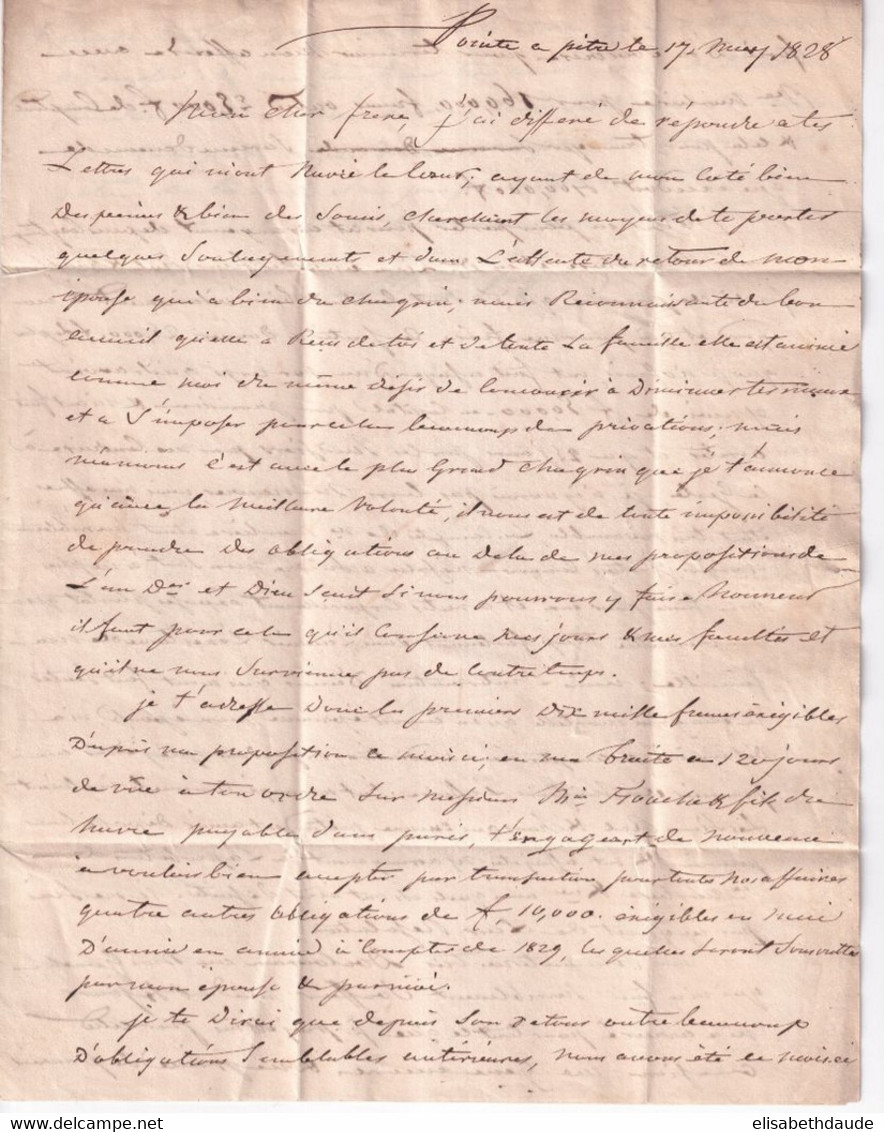 Pointe a pitre le 17 may 1828
Mon cher frere, j'ai differé de répondre a tes
Lettres qui m'ont navré le coeur; ayant de mon coté bien
Des peines & bien des soucis, cherchant les moyens de te porter
quelques soulagements et dans L'attente du retour de mon
épouse qui a bien du chagrin; mais Reconnaissante du bon
accueil qu'elle a Recu de toi et de toute La famille elle est animée
comme moi du même désir de concourir à Diminuer tes maux
et a S'imposer pour cela beaucoup de privations; mais
c'est avec le plus Grand chagrin que je t'annonce
qu'avec la meilleure volonté, il nous est de toute impossibilité
de prendre des obligations au Dela de mes propositions de
L'an Der et Dieu sait si nous pourrons y faire honneur
il faut pour cela qu'il conserve mes jours & mes facultés et
qu'il ne nous survienne pas de contretemps.
je t'adresse Donc les premiers Dix mille francs éxigibles
D'après ma proposition ce mois ci, en ma traite a 120 jours
de vue à ton ordre sur Messieurs & fils du
havre payable dans paris, t'engageant de nouveau
a vouloir bien accepter par transaction pour toutes nos affaires
quatre autres obligations de f. 10,000. éxigibles en mai
D'année en année à compter de 1829, les quelles seront souscrittes
par mon épouse & par moi.
je te Dirai que depuis son retour outre beaucoup
D'obligations semblables antérieures, nous avons été ce mois ci
elisabethdaude